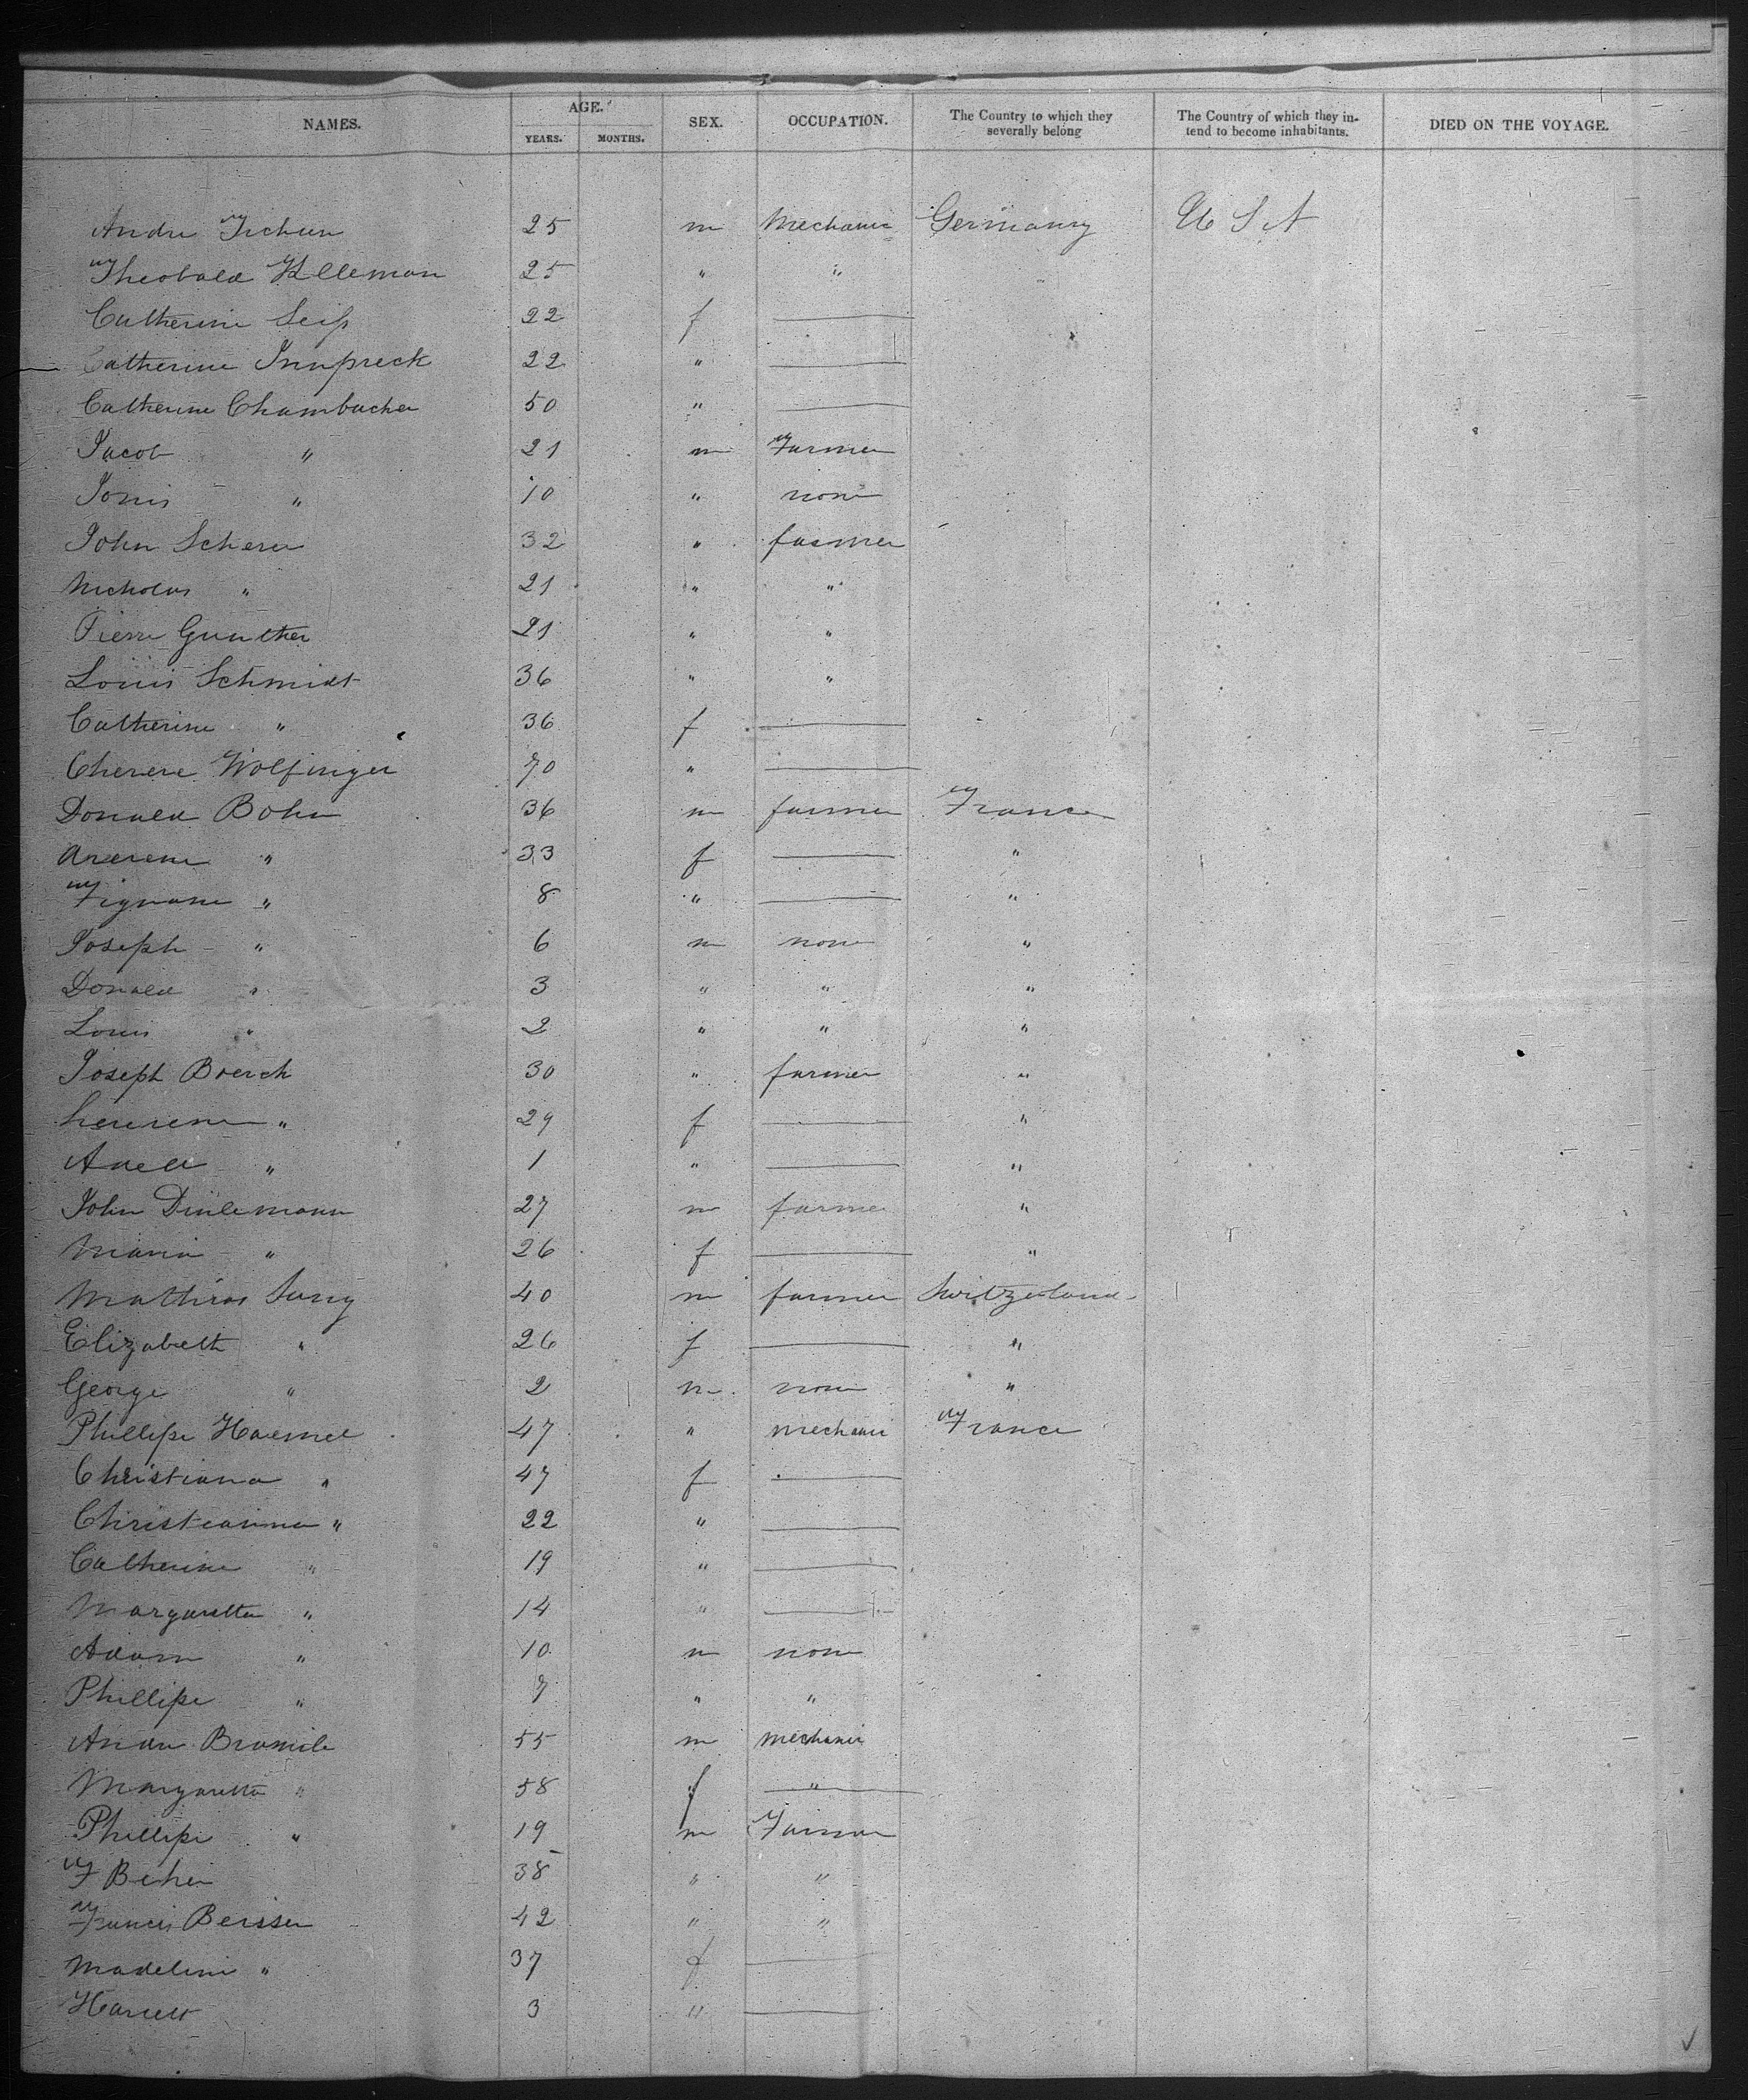 NAMES. AGE. YEARS. MONTHS. SEX. OCCUPATION. The Country to which they severally belong The Country of which they intend to become inhabitants. DIED ON THE VOYAGE.
Andre 25 m Mechanic Germany U S A
Theobald Kelleman 25 " "
Catherine Seiss 22 f
Catherine 22 "
Catherine Chambacher 50 "
Jacob " 21 m Farmer
Louis " 10 " none
John Scherer 32 " farmer
Nicholas " 21 " "
Pierre Gunther 21 " "
Louis Schmidt 36 " "
Catherine " 36 f
Wolfinger 70 "
Donald Bohn 36 m farmer France
" 33 f "
" 8 " "
Joseph " 6 m none "
Donald " 3 " " "
Louis " 2 " " "
Joseph Boerch 30 " farmer "
" 29 f "
" 1 " "
John Dinlemann 27 m farmer "
Maria " 26 f "
Mathias 40 m farmer Switzerland
Elizabeth " 26 f "
George " 2 m none "
Phillipe Haemel 47 " mechanic France
Christiana " 47 f
Christianna " 22 "
Catherine " 19 "
Margaretta " 14 "
Adam " 10 m none
Phillipe " 7 " "
55 m mechanic
Margaretta " 58 f "
Phillipe " 19 m Farmer
F 38 " "
Francis Beisser 42 " "
Madeline " 37 f
Hariett 3 "